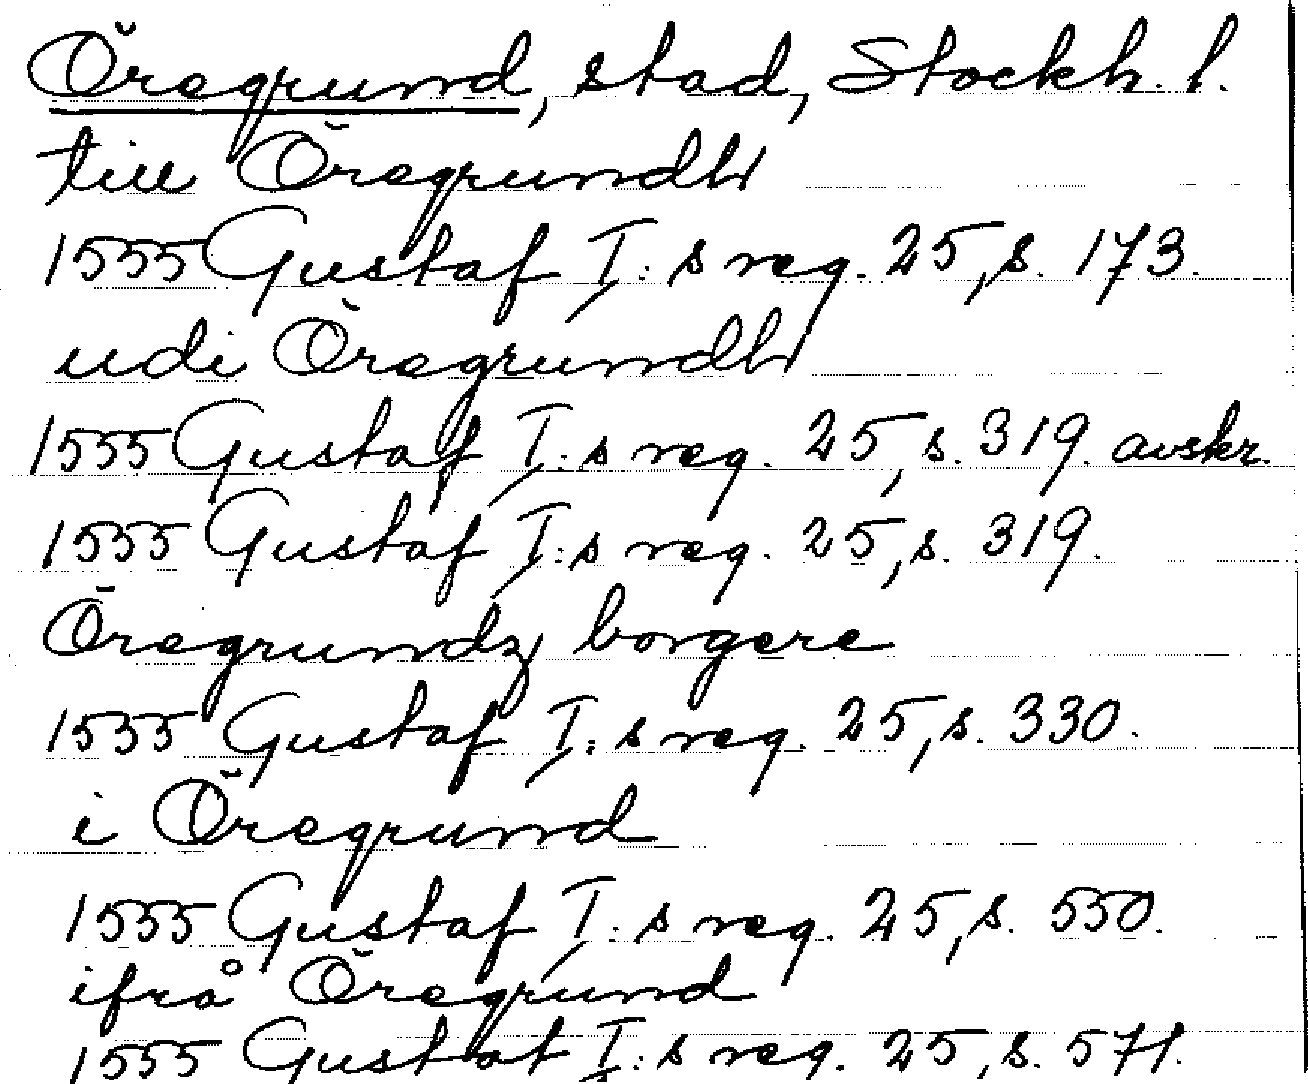 Öregrund, stad, Stockh. l.
till Öregrundh
1555 Gustaf I:s reg. 25, s. 173.
udi Öregrundh
1555 Gustaf I:s reg. 25, s. 319. avskr.
1555 Gustaf I:s reg. 25, s. 319.
Öregrundz borgere
1555 Gustaf I:s reg. 25, s. 330.
i Öregrund
1555 Gustaf I:s reg. 25, s. 550.
ifrå Öregrund
1555 Gustaf I:s reg. 25, s. 571.